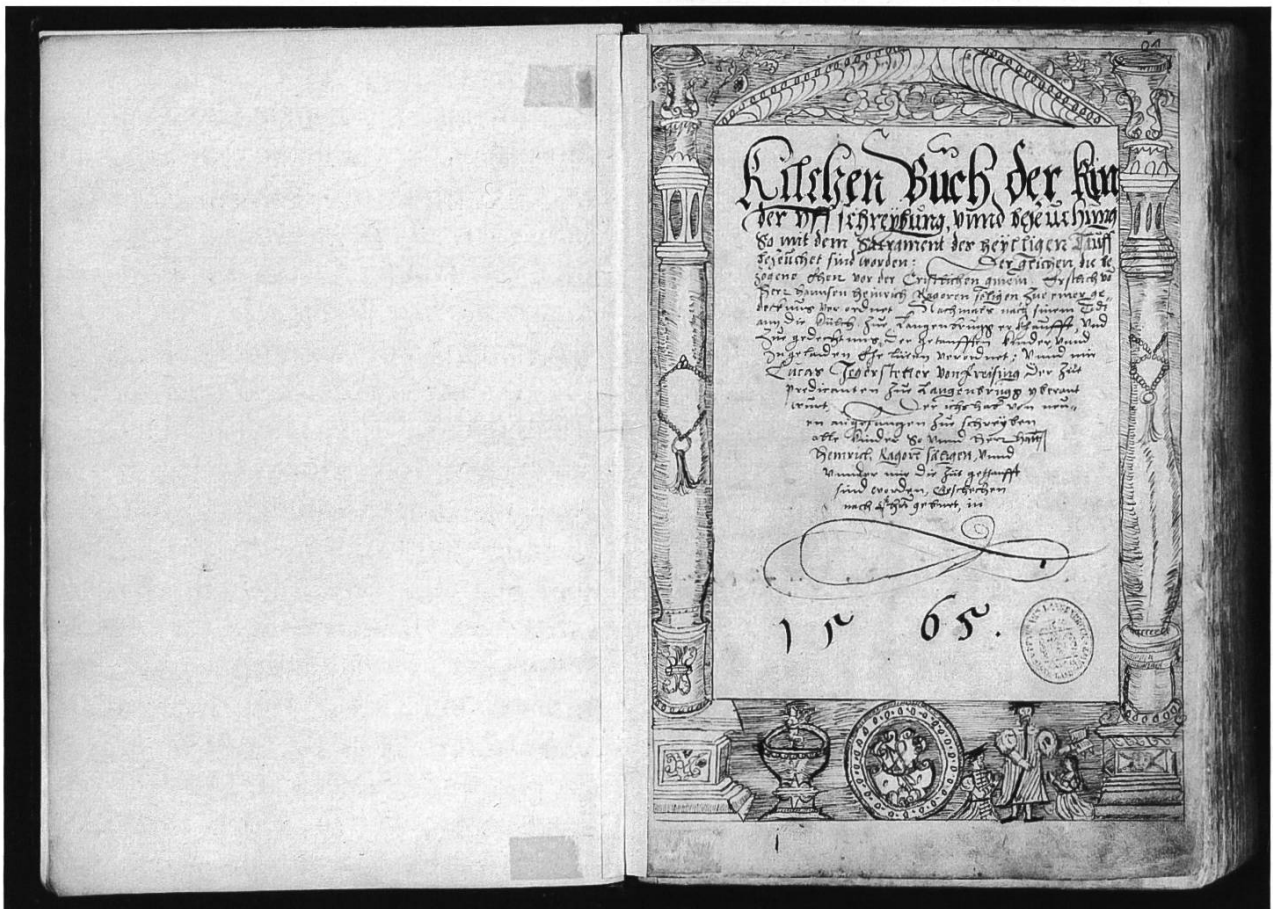 Kilchen Buch der kin
der uff schreybung, unnd bezeuchung
So mit dem Sacrament des heylligen Tauff
bezeuchet sind worden: Der gleichen die be
zogene Ehen vor der Cristlichen gmein. Erstlich vo
Herr Hannsen Heinrich Ragoren seligen zue einer ge-
decktnus ver ordnet Nachmals nach sinem Todt
ann die Kilch zue Langenbrugg erkhaufft, und
zue gedechtnus der getaufften kinder unnd
Ehe verordnet; Unnd mir
Lucas Jegerstetter von freising der Zÿt
predicanten zue Langenbrugg uberant
wurt. Der ichs hab von neu-
en angefangen zue schreyben
alle kinder so unnd Herr Hanß
Heinrich, Ragorē säligen, unnd
unnder mir die Zÿt gethaufft
sind worden, Geschechen
nach geburt, in
1565.
1